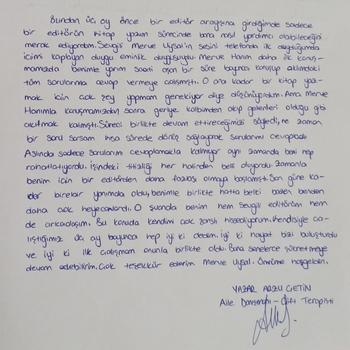 Bundan üç ay önce bir editör arayışına girdiğimde sadece
bir editörün kitap yazım sürecinde bana nasıl yardımcı olabileceğini
merak ediyordum. Sevgili Merve Uysal'ın sesini telefonda ilk duyduğumda
içimi kaplayan duygu eminlik duygusuydu. Merve Hanım daha ilk konuş-
mamızda benimle yarım saati aşan bir süre boyunca konuşup aklımdaki
tüm sorularıma cevap vermeye çalışmıştı. O ana kadar bir kitap yaz-
mak için çok şey yapmam gerekiyor diye düşünüyordum. Ama Merve
Hanımla konuşmamızdan sonra geriye kalbimden akıp gelenleri olduğu gibi
akıtmak kalmıştı. Süreci birlikte devam ettireceğimizi söyledi, ne zaman
bir soru sorsam kısa sürede dönüş sağlayarak sorularımı cevapladı.
Aslında sadece sorularımı cevaplamakla kalmıyor aynı zamanda beni hep
rahatlatıyordu. İşindeki titizliği her halinden belli oluyordu. Zamanla
benim için bir editörden daha fazlası olmaya başlamıştı. Son güne ka-
dar birebir yanımda oldu, benimle birlikte hatta belki bazen benden
daha çok heyecanlandı. O şuanda benim hem sevgili editörüm hem
de arkadaşım. Bu konuda kendimi çok şanslı hissediyorum. Kendisiyle ça-
lıştığımız üç ay boyunca hep iyi ki dedim. İyi ki hayat bizi buluşturdu
ve iyi ki ilk çalışmam onunla birlikte oldu. Bana senelerce şükretmeye
devam edebilirim. Çok teşekkür ederim Merve Uysal. Ömrüme hoşgeldin.
YAZAR ARZU ÇETİN
Aile Danışmanı - Çift Terapisti